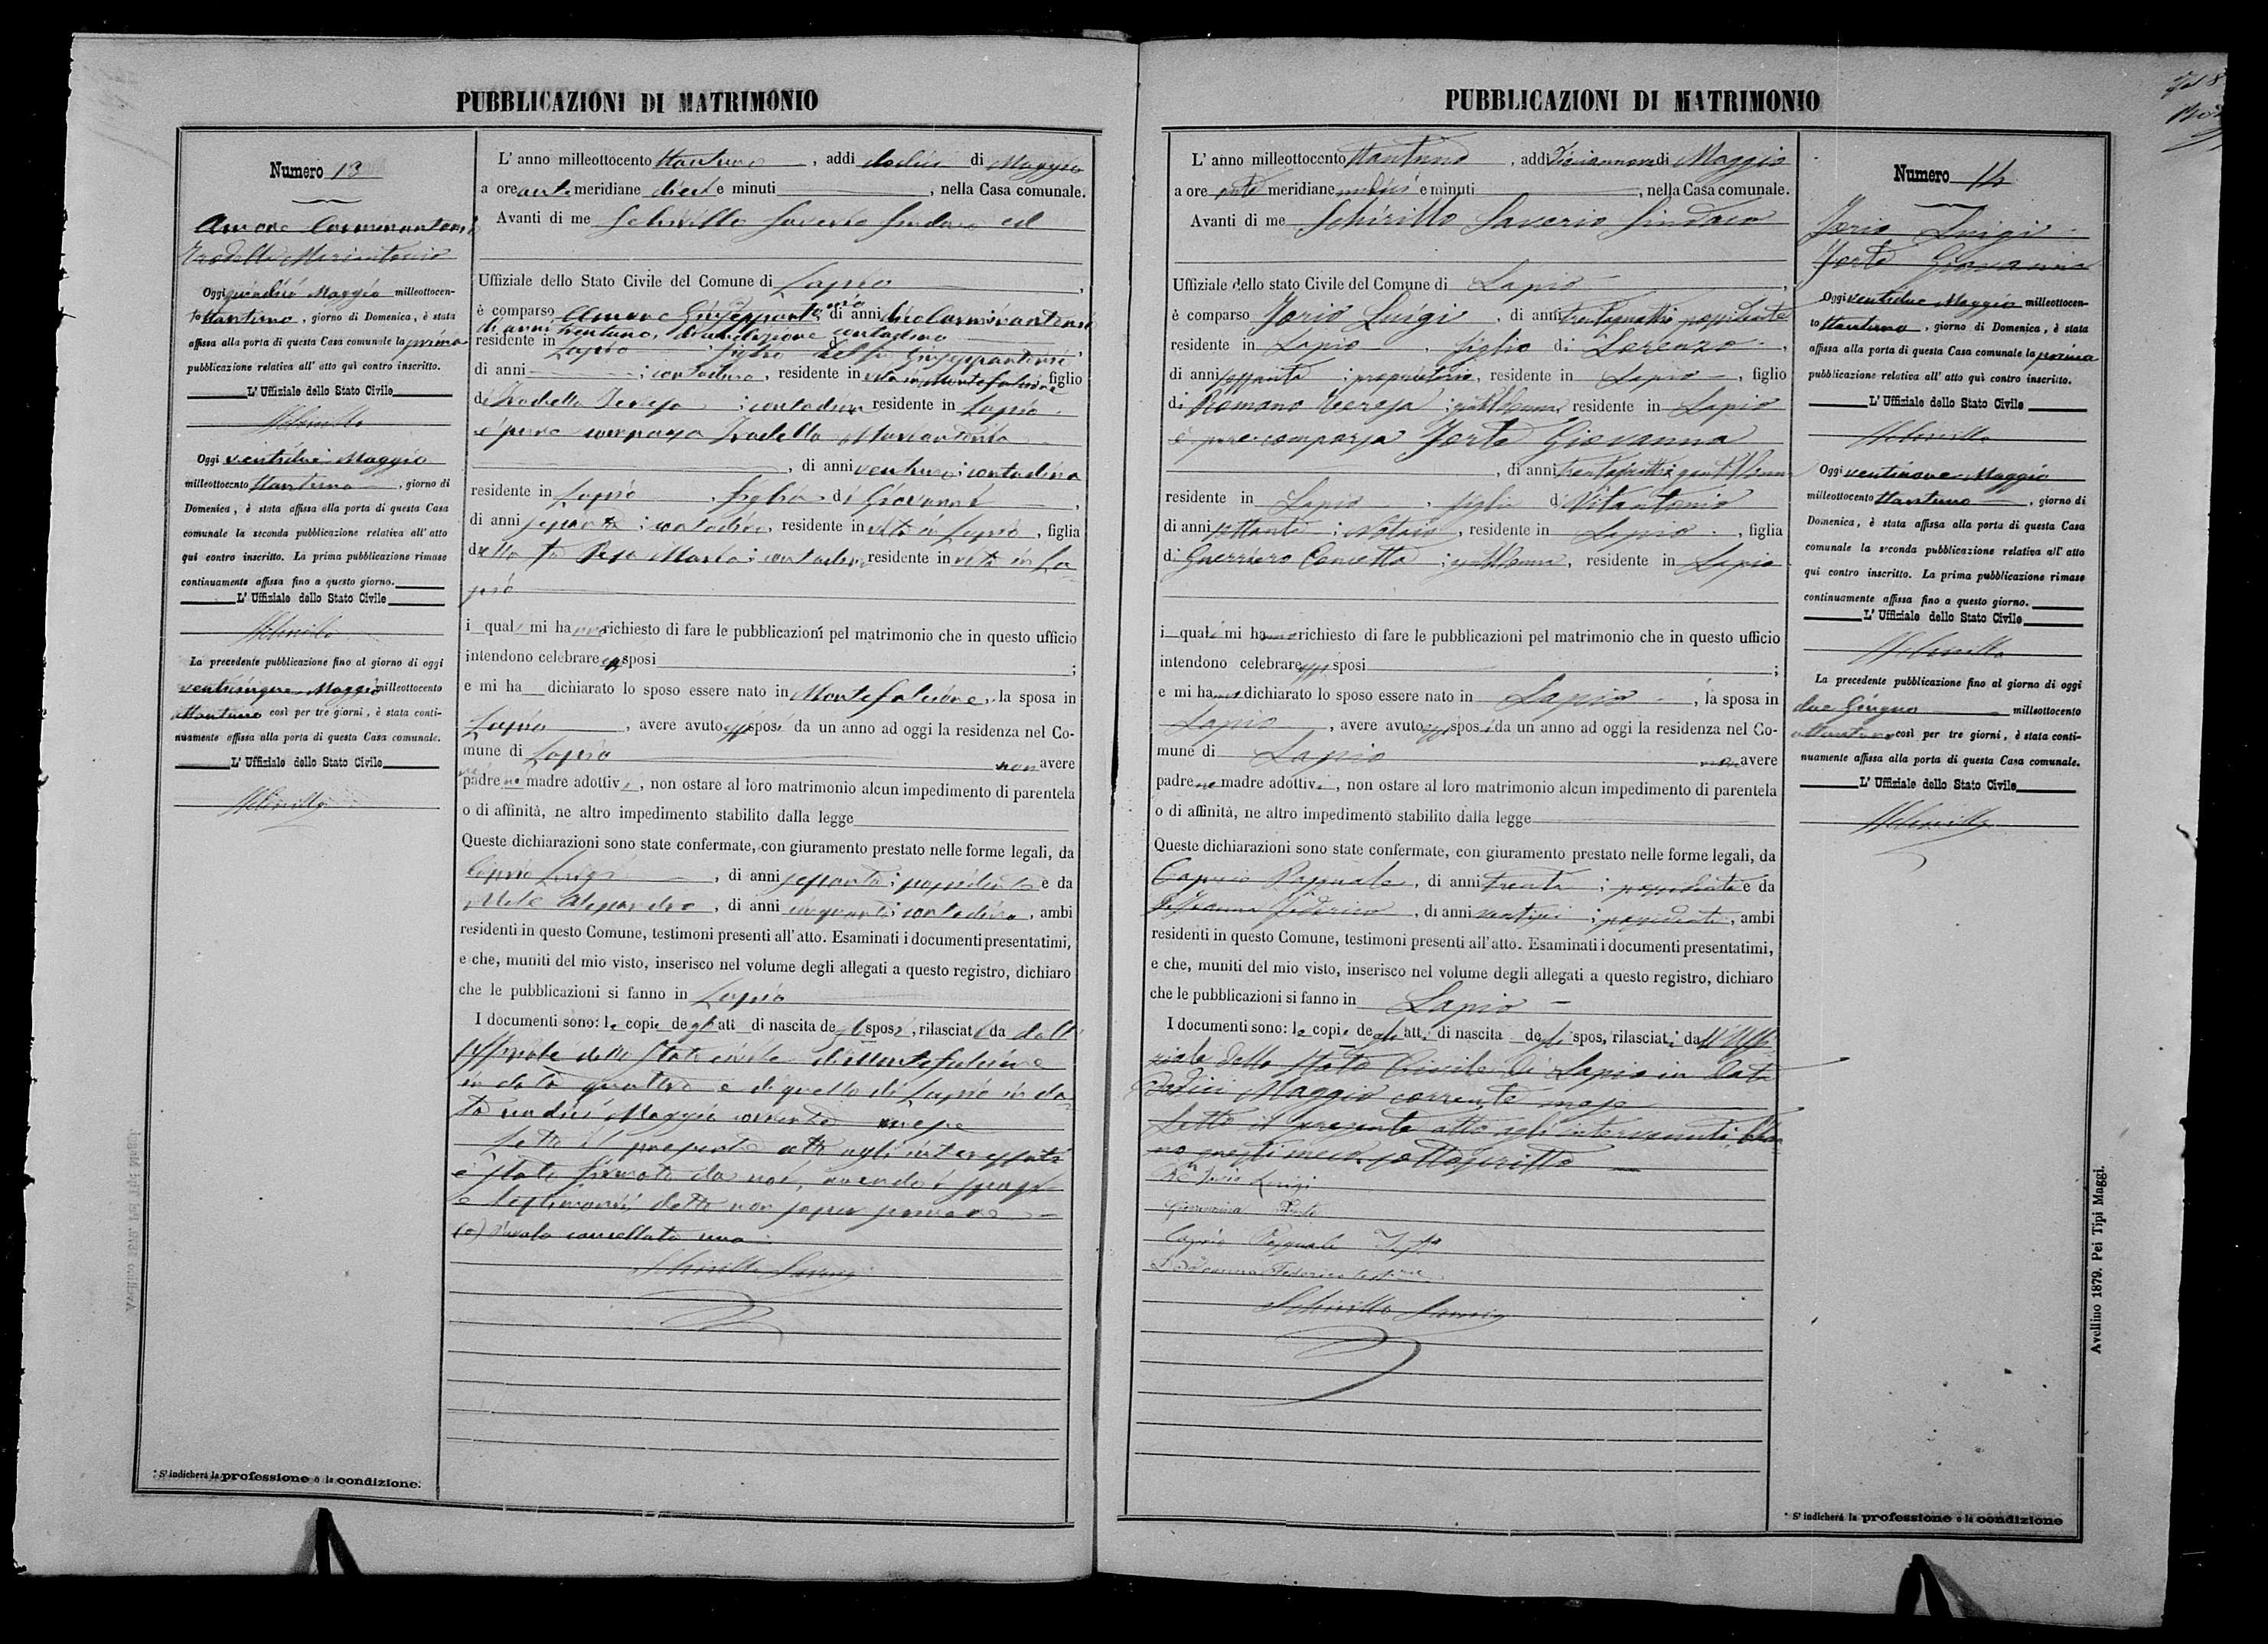 PUBBLICAZIONI DI MATRIMONIO
Numero 13
Amore Carminantonio
Trodella Mariantonia
Oggi quindici Maggio milleottocen-
to ttantuno, giorno di Domenica, è stata
affissa alla porta di questa Casa comunale la prima
pubblicazione relativa all' atto quì contro inscritto.
L' Uffiziale dello Stato Civile
Schirillo
Oggi ventidue Maggio
milleottocento ttantuno, giorno di
Domenica, è stata affissa alla porta di questa Casa
comunale la seconda pubblicazione relativa all' atto
qui contro inscritto. La prima pubblicazione rimase
continuamente affissa fino a questo giorno.
L' Uffiziale dello Stato Civile
Schirillo
La precedente pubblicazione fino al giorno di oggi
venticinque Maggio milleottocento
ottantuno così per tre giorni, è stata conti-
nuamente affissa alla porta di questa Casa comunale.
L' Uffiziale dello Stato Civile
Schirillo
* S' indicherà la professione o la condizione.
L' anno milleottocento ttantuno, addi dodici di Maggio
a ore anti meridiane dieci e minuti, nella Casa comunale.
Avanti di me Schirillo Saverio Sindaco ed
Uffiziale dello Stato Civile del Comune di Lapio,
è comparso Amore di anni Carminantonio
di anni trentuno, di condizione contadino
residente in Lapio figlio del fu Giuseppantonio
di anni; contadino, residente in vita in Montefalcione figlio
di Trodella Teresa; contadina residente in Lapio
è pure comparsa Trodella Mariantonia
, di anni ventuno; contadina
residente in Lapio, figlia di Giovanni,
di anni sessanta; contadino, residente in vita in Lapio, figlia
della fu Maria; contadina residente in vita in La-
pio
i quali mi hanno richiesto di fare le pubblicazioni pel matrimonio che in questo ufficio
intendono celebrare essi sposi;
e mi ha dichiarato lo sposo essere nato in Montefalcione, la sposa in
Lapio, avere avuto essi sposi da un anno ad oggi la residenza nel Co-
mune di Lapio non avere
padre ne madre adottivi, non ostare al loro matrimonio alcun impedimento di parentela
o di affinità, ne altro impedimento stabilito dalla legge
Queste dichiarazioni sono state confermate, con giuramento prestato nelle forme legali, da
Caprio Luigi, di anni sessanta; possidente e da
Mele Alessandro, di anni cinquanta; contadino, ambi
residenti in questo Comune, testimoni presenti all' atto. Esaminati i documenti presentatimi,
e che, muniti del mio visto, inserisco nel volume degli allegati a questo registro, dichiaro
che le pubblicazioni si fanno in Lapio
I documenti sono: le copie degli atti di nascita degli sposi, rilasciati da dall'
Uffiziale dello Stato civile di Montefalcione
in data quattro e di quello di Lapio in da-
ta undici Maggio corrente mese
Letto il presente atto agli interessati
è stato firmato da noi, avendo i sposi
e testimonii detto non saper firmare
(a) Parola cancellata una
Schirillo Saverio
PUBBLICAZIONI DI MATRIMONIO
L' anno milleottocento ttantuno, addi diciannove di Maggio
a ore anti meridiane undici e minuti, nella Casa comunale.
Avanti di me Schirillo Saverio Sindaco
Uffiziale dello stato Civile del Comune di Lapio,
è comparso Jorio Luigi, di anni trentaquattro possidente
residente in Lapio, figlio di Lorenzo,
di anni sessanta; proprietario, residente in Lapio, figlio
di Romano Teresa; gentildonna residente in Lapio
è pure comparsa Forte Giovanna
, di anni gentildonna
residente in Lapio, figlia di Vitantonio
di anni settanta; Notaio, residente in Lapio, figlia
di Guerriero Concetta; gentildonna, residente in Lapio
i quali mi hanno richiesto di fare le pubblicazioni pel matrimonio che in questo ufficio
intendono celebrare essi sposi;
e mi hanno dichiarato lo sposo essere nato in Lapio, la sposa in
Lapio, avere avuto essi sposi da un anno ad oggi la residenza nel Co-
mune di Lapio non avere
padre ne madre adottivi, non ostare al loro matrimonio alcun impedimento di parentela
o di affinità, ne altro impedimento stabilito dalla legge
Queste dichiarazioni sono state confermate, con giuramento prestato nelle forme legali, da
Caprio Pasquale, di anni trenta; possidente e da
DeJoanna Federico, di anni ventisei; possidente, ambi
residenti in questo Comune, testimoni presenti all' atto. Esaminati i documenti presentatimi,
e che, muniti del mio visto, inserisco nel volume degli allegati a questo registro, dichiaro
che le pubblicazioni si fanno in Lapio
I documenti sono: le copie degli atti di nascita degli sposi, rilasciati dall' Uffi-
ziale dello Stato Civile di Lapio in data
dodici Maggio corrente mese
Letto il presente atto agli intervenuti, han-
no questi meco sottoscritto
Jorio Luigi
Giovannina Forte
Caprio Pasquale
DeJoanna Federico
Schirillo Saverio
Numero 14
Jorio Luigi
Forte Giovanna
Oggi ventidue Maggio milleottocen-
to ttantuno, giorno di Domenica, è stata
affissa alla porta di questa Casa comunale la prima
pubblicazione relativa all' atto quì contro inscritto.
L' Uffiziale dello Stato Civile
Schirillo
Oggi ventinove Maggio
milleottocento ttantuno, giorno di
Domenica, è stata affissa alla porta di questa Casa
comunale la seconda pubblicazione relativa all' atto
qui contro inscritto. La prima pubblicazione rimase
continuamente affissa fino a questo giorno.
L' Uffiziale dello Stato Civile
Schirillo
La precedente pubblicazione fino al giorno di oggi
due Giugno milleottocento
ottantuno così per tre giorni, è stata conti-
nuamente affissa alla porta di questa Casa comunale.
L' Uffiziale dello Stato Civile
Schirillo
* S' indicherà la professione o la condizione
Avellino 1879. Pei Tipi Maggi.